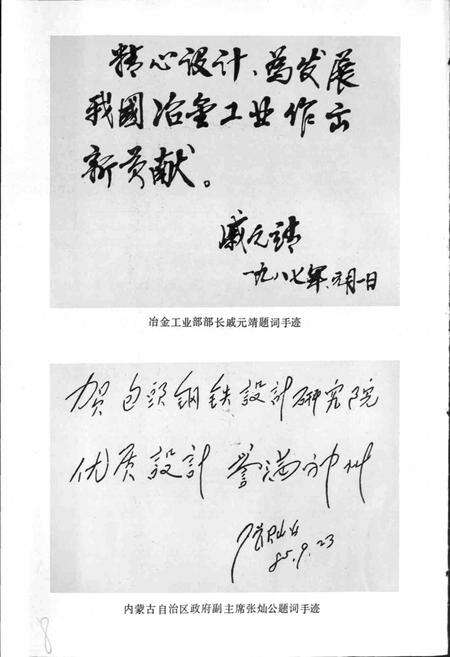 精心设计、为发展
我國冶金工业作出
新贡献。
戚元靖
一九八七年元月一日
冶金工业部部长戚元靖题词手迹
贺包頭鋼铁設計研究院
优质設計 誉满神州
张灿公
85.9.23
内蒙古自治区政府副主席张灿公题词手迹
8